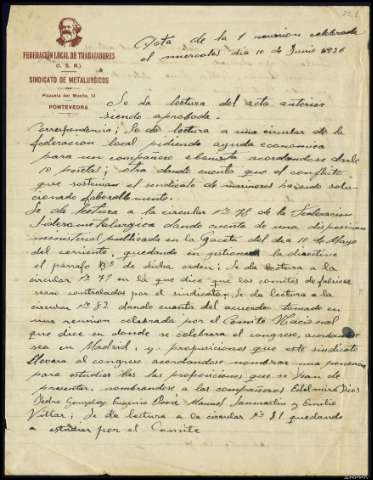 FEDERACIÓN LOCAL DE TRABAJADORES
(U. G. T.)
SINDICATO DE METALURGICOS
PONTEVEDRA
Acta de la reunion celebrada
el miercoles dia 10 de Junio 1936
Se da lectura del acta anterior
siendo aprobada.
Correspondencia; Se da lectura a una circular de la
federacion local pidiendo ayuda economica
para un compañero ebanista acordandose darle
10 pesetas; otra dando cuenta que el conflicto
que sostenian el sindicato de marineros habia
cionado faborablemente.
Se da lectura a la circular nº 76 de la Federacion
Siderometalurgica dando cuenta de una disposicion
ministerial publicada en la Gaceta del dia 10 de Mayo
del corriente, quedando en la directiva
el parrafo de dicha orden; Se da lectura a la
circular nº 79 en la que dice que los comites de fabrica
sean controlados por el sindicato, Se da lectura a la
circular nº 82 dando cuenta del acuerdo tomado en
una reunion celebrada por el Comite Nacional
que dice en donde se celebrara el congreso, acordando
sea en Madrid, y, proposiciones que este sindicato
llevara al congreso acordandose nombrar una ponencia
para estudiar las proposiciones que se han de
presentar, nombrandose a los compañeros Edelmiro Dios
Pedro Gonzalez Eugenio Manuel Sanmartin y Emilio
Villar; Se da lectura a la circular nº 81 quedando
a estudiar por el Comite